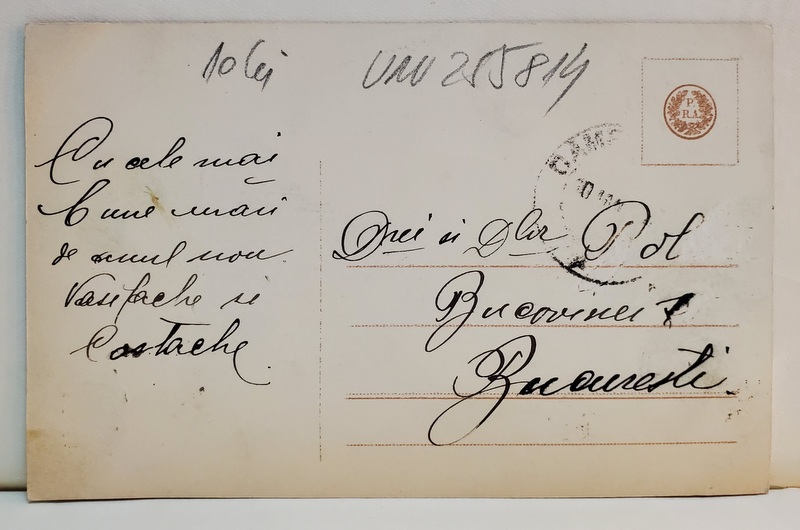 10 lei
UNU 255814
P.
R.A.
CAMP
Cu cele mai
bune urări
de anul nou
Vasilache si
Costache.
Dnei si Dlui Pol
Bucovinei 7
Bucuresti.